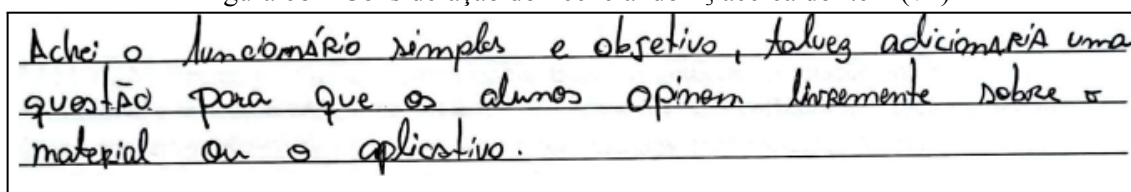 Achei o funcionário simples e objetivo, talvez adicionaria uma
questão para que os alunos opinem livremente sobre o
material ou o aplicativo.